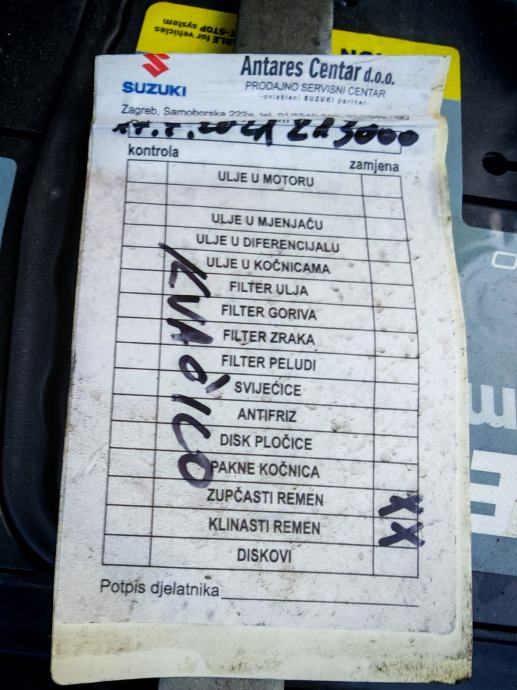 BLE for vehicles
T-STOP system
SUZUKI
Antares Centar d.o.o.
PRODAJNO SERVISNI CENTAR
-ovlašteni SUZUKI partner-
Zagreb, Samoborska 222a, tel.
213000
kontrola
zamjena
ULJE U MOTORU
ULJE U MJENJAČU
ULJE U DIFERENCIJALU
ULJE U KOČNICAMA
FILTER ULJA
FILTER GORIVA
FILTER ZRAKA
FILTER PELUDI
SVIJEĆICE
ANTIFRIZ
DISK PLOČICE
PAKNE KOČNICA
ZUPČASTI REMEN
X
KLINASTI REMEN
X
DISKOVI
Potpis djelatnika